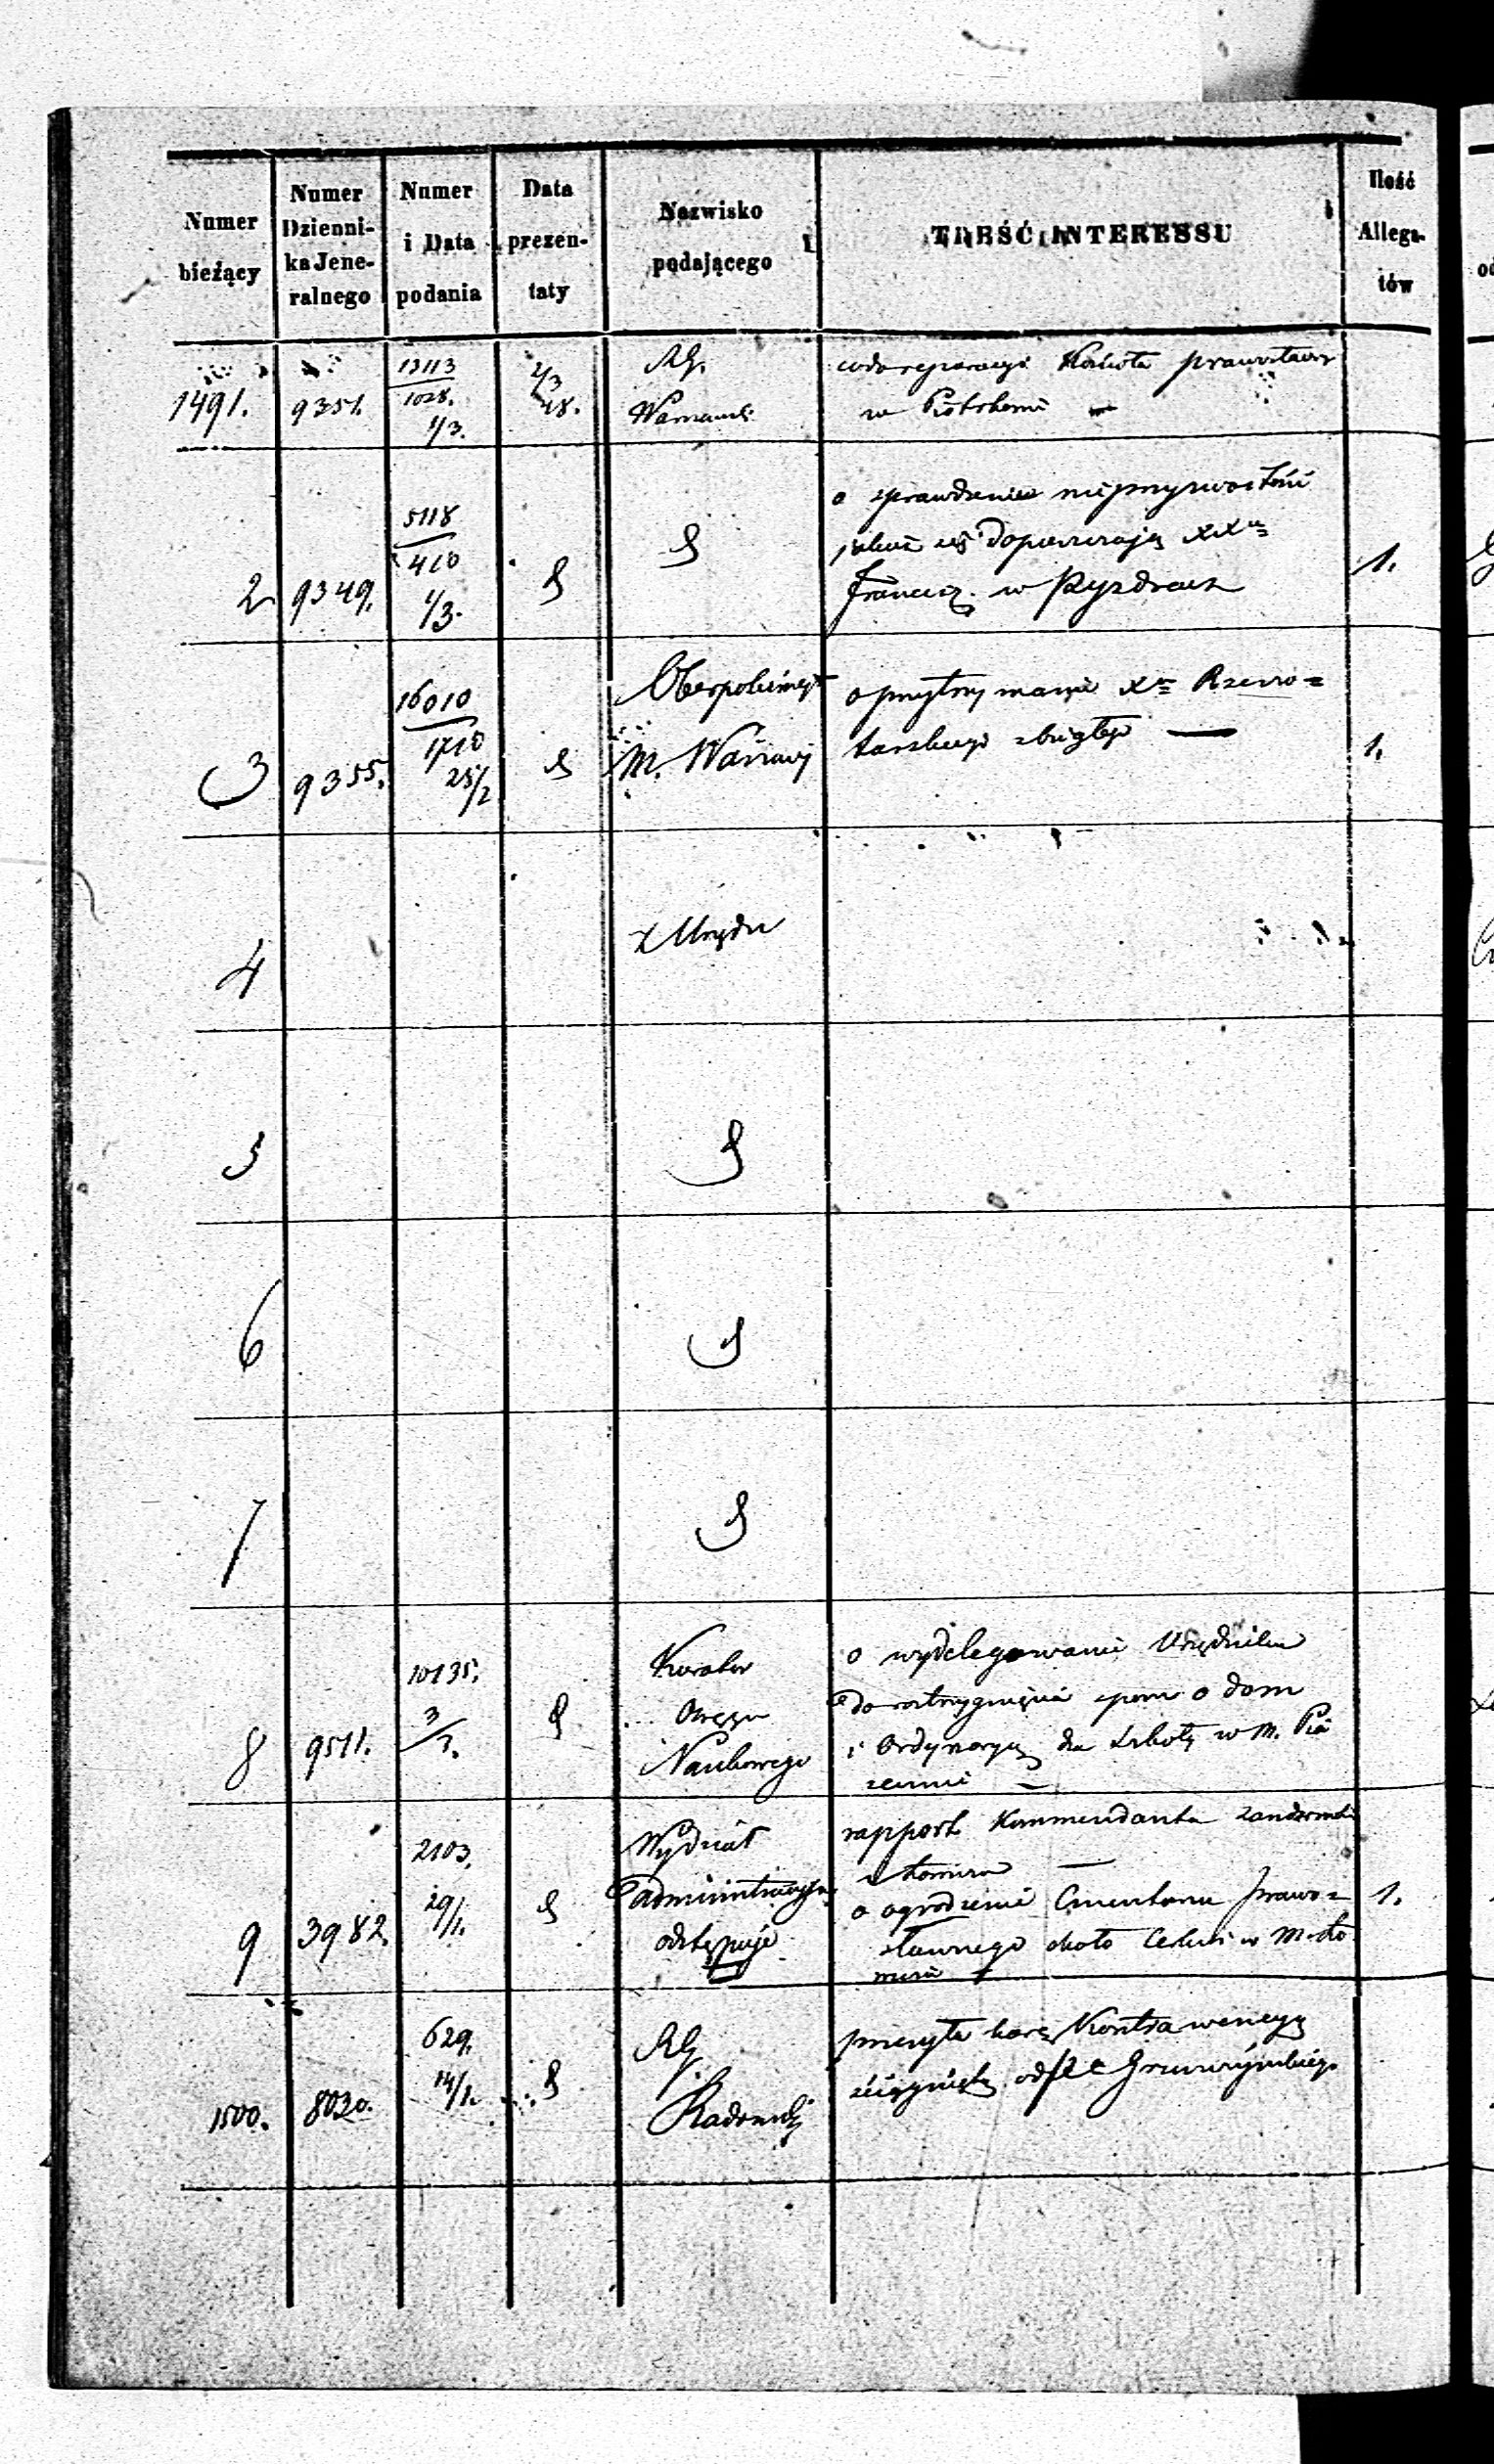 Numer bieżący
Numer Dzienni- ka Jene- ralnego
Numer i Data podania
Data prezen- taty
Nazwisko podającego
TREŚĆ INTERESSU
Ilość Allega- tów
1491. 9351. 13113 1028. 1/3. 2/3 48. RG. Warszawski
Kościoła prawosław
w Piotrkowie
2 9349. 5118 410 1/3.
o sprawdzenie nieprzyzwoitości
jakich się dopuszczają XX
Francisz. w Pyzdrach
1.
3 9355. 16010 1710 25/2 Oberpolicmajst
M. Warszawy
o przytrzymanie Xa Rzewo=
tarskiego zbiegłego
1.
4 z Urzędu
5
6
7
8 9511. 10135. 3/3. Kurator
Okręgu
Naukowego
o wydelegowanie Urzędnika
do rozstrzygnięcia sporu o dom
i Ordynaryą dla Szkoły w M.
9 3982. 2103. 29/1. Wydział
administracyjny
odstępuje
rapport Kommendanta Żandarmerii
o ogrodzenie Cmentarza prawo=
sławnego około Cerkwi w M. Ło
1.
1500. 8020. 629. 14/1. RG
Radomski
przesyła karę Kontrawencyi
ściągniętą od